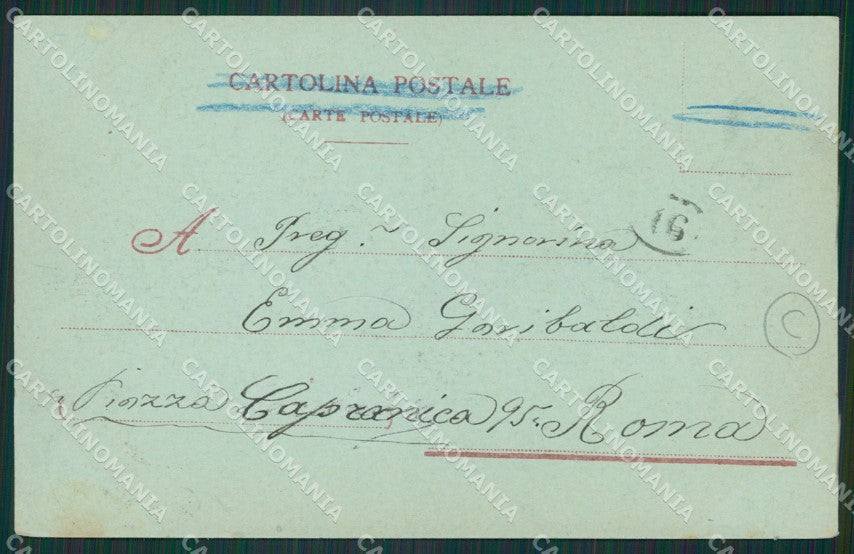 CARTOLINA POSTALE
(CARTE POSTALE)
16
A Preg. ~ Signorina
Emma Garibaldi
C
Piazza Capranica 95. Roma
CARTOLINOMANIA